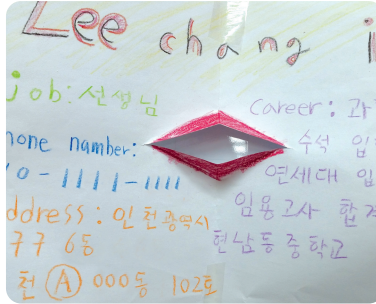 Lee chang
job: 선생님
hone namber:
0-1111-1111
ddress: 인천광역시
구 6동
천 Ⓐ 000동 102호
Career:
수석
연세대
임용고사 합격
현남동중학교